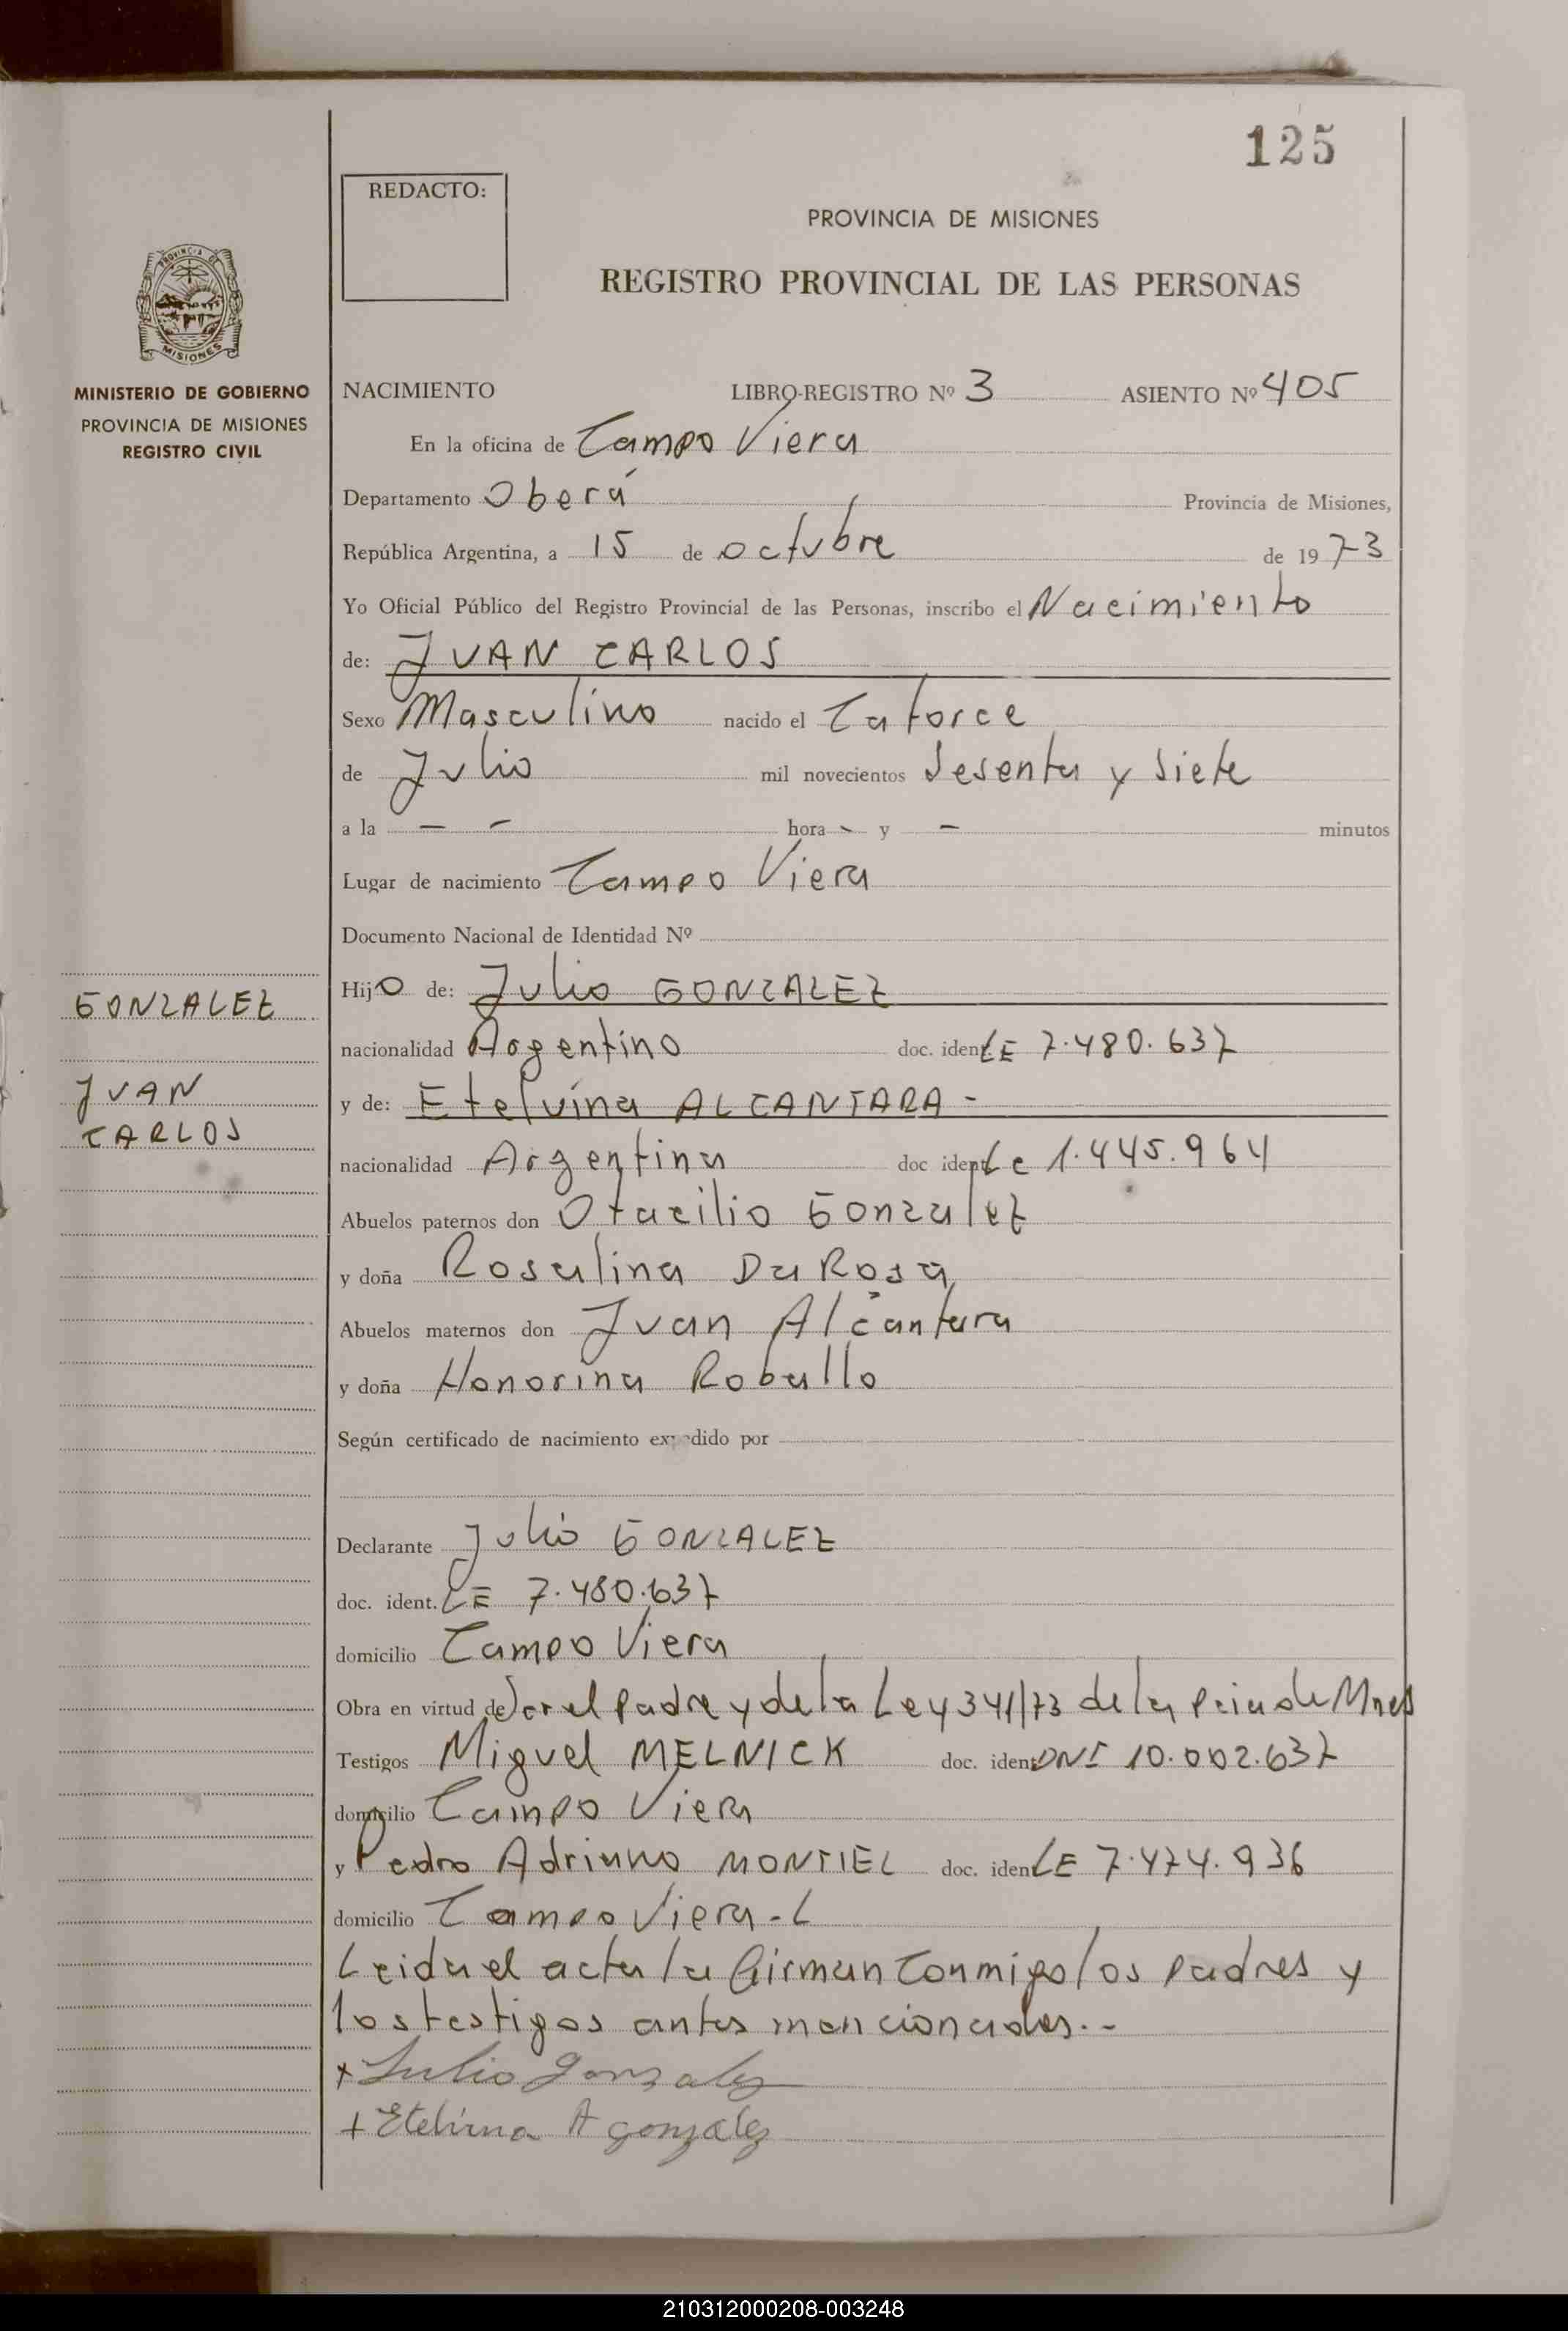 125
REDACTO:
PROVINCIA DE MISIONES
REGISTRO PROVINCIAL DE LAS PERSONAS
PROVINCIA DE
MISIONES
MINISTERIO DE GOBIERNO
PROVINCIA DE MISIONES
REGISTRO CIVIL
NACIMIENTO LIBRO-REGISTRO Nº 3 ASIENTO Nº 405
En la oficina de Campo Viera
Departamento Oberá Provincia de Misiones,
República Argentina, a 15 de octubre de 1973
Yo Oficial Público del Registro Provincial de las Personas, inscribo el Nacimiento
de: JUAN CARLOS
Sexo Masculino nacido el Catorce
de Julio mil novecientos Sesenta y Siete
a la — — hora - y — minutos
Lugar de nacimiento Campo Viera
Documento Nacional de Identidad Nº
GONZALEZ
JUAN
CARLOS
Hijo de: Julio GONZALEZ
nacionalidad Argentino doc. ident. LE 7.480.637
y de: Etelvina ALCANTARA -
nacionalidad Argentina doc ident Lc 1.445.964
Abuelos paternos don Otacilio Gonzalez
y doña Rosalina Da Rosa
Abuelos maternos don Juan Alcantara
y doña Honorina Roballo
Según certificado de nacimiento expedido por
Declarante Julio GONZALEZ
doc. ident. LE 7.480.637
domicilio Campo Viera
Obra en virtud de ser el Padre y de la Ley 341/73 de la Pcia de Mnes
Testigos Miguel MELNICK doc. ident DNI 10.002.637
domicilio Campo Viera
y Pedro Adriano MONTIEL doc. iden LE 7.474.936
domicilio Campo Viera.-L
Leida el acta la firman Conmigo los padres y
los testigos antes mencionados.-
+ Julio Gonzalez
+ Etelvina A gonzalez
210312000208-003248